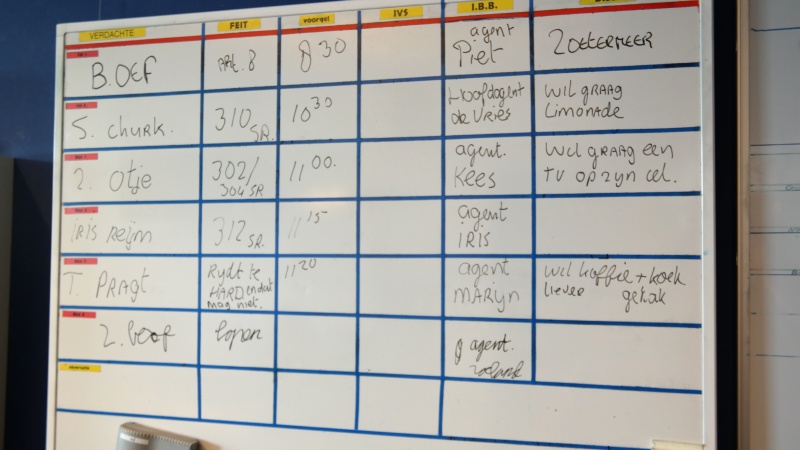 VERDACHTE FEIT voorgel IVS I.B.B.
B. OEF ART. 8 8 30 agent Piet ZOETERMEER
S. churk. 310 SR. 10 30 Hoofdagent de Vries wil graag Limonade
2. Otje 302/ 304 SR 11 00. agent. Kees wil graag een TV op zyn cel.
iRiS Reijn 312 SR. 11 15 agent IRIS
T. PRAgt Rydt te HARD en dat mag niet. 11 20 agent MARIJN wil koffie + koek liever gebak
2. boef lopen agent.